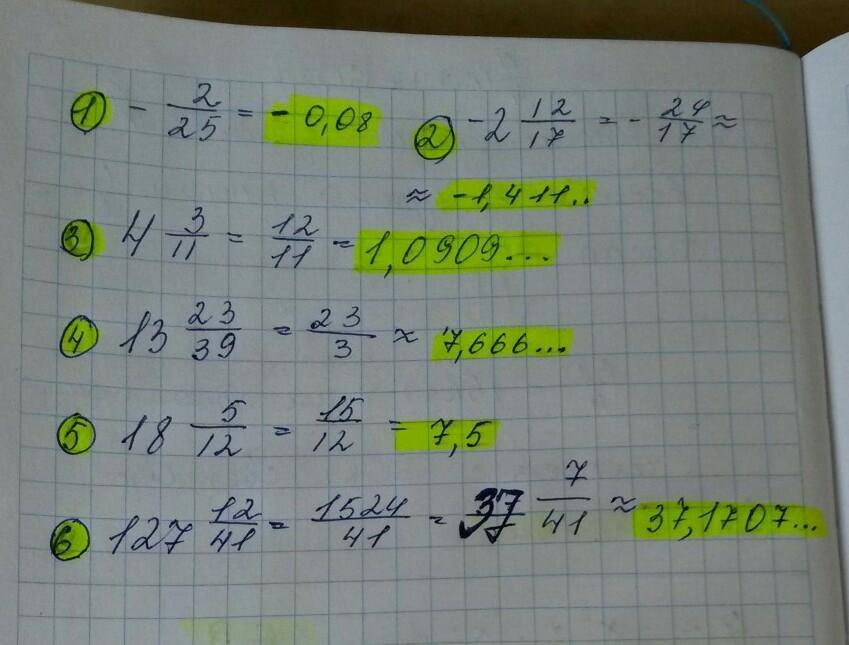 1) - 2/25 = - 0,08 2) -2 12/17 = - 24/17 ≈
≈ -1,411..
3) 4 3/11 = 12/11 = 1,0909...
4) 13 23/39 = 23/3 ≈ 7,666...
5) 18 5/12 = 15/12 = 7,5
6) 127 12/41 = 1524/41 = 37 7/41 ≈ 37,1707...